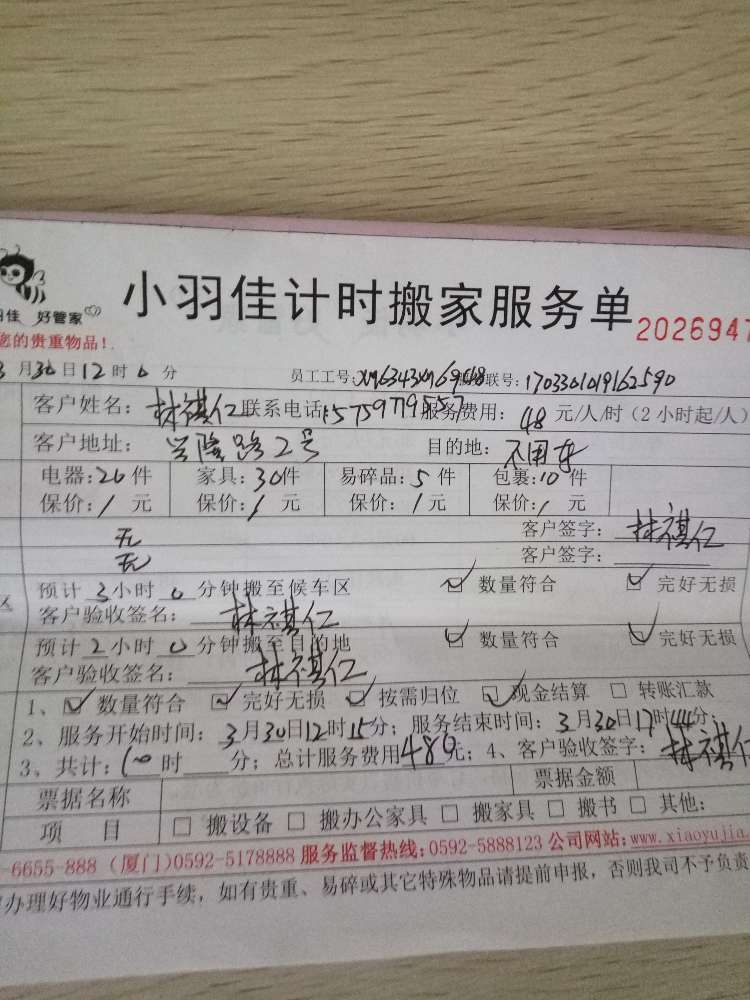 小羽佳计时搬家服务单
2026947
羽佳 好管家
您的贵重物品!
3月30日12时0分 员工工号: 联号:1703301019162590
客户姓名:林祺仁 联系电话:15759779557 服务费用:48元/人/时(2小时起/人)
客户地址:兴隆路2号 目的地:不用车
电器:20件 家具:30件 易碎品:5件 包裹:10件
保价:/元 保价:/元 保价:/元 保价:/元
无 客户签字:林祺仁
无 客户签字:
区 预计3小时0分钟搬至候车区 ☑数量符合 ☑完好无损
客户验收签名:林祺仁
预计2小时0分钟搬至目的地 ☑数量符合 ☑完好无损
客户验收签名:林祺仁
1、☑数量符合 ☑完好无损 ☑按需归位 ☑现金结算 □转账汇款
2、服务开始时间:3月30日12时15分;服务结束时间:3月30日17时44分;
3、共计:10时 分;总计服务费用480元;4、客户验收签字:林祺仁
票据名称 票据金额
项目 □搬设备 □搬办公家具 □搬家具 □搬书 □其他:
-6655-888 (厦门)0592-5178888 服务监督热线:0592-5888123 公司网站:www.xiaoyujia.
办理好物业通行手续,如有贵重、易碎或其它特殊物品请提前申报,否则我司不予负责